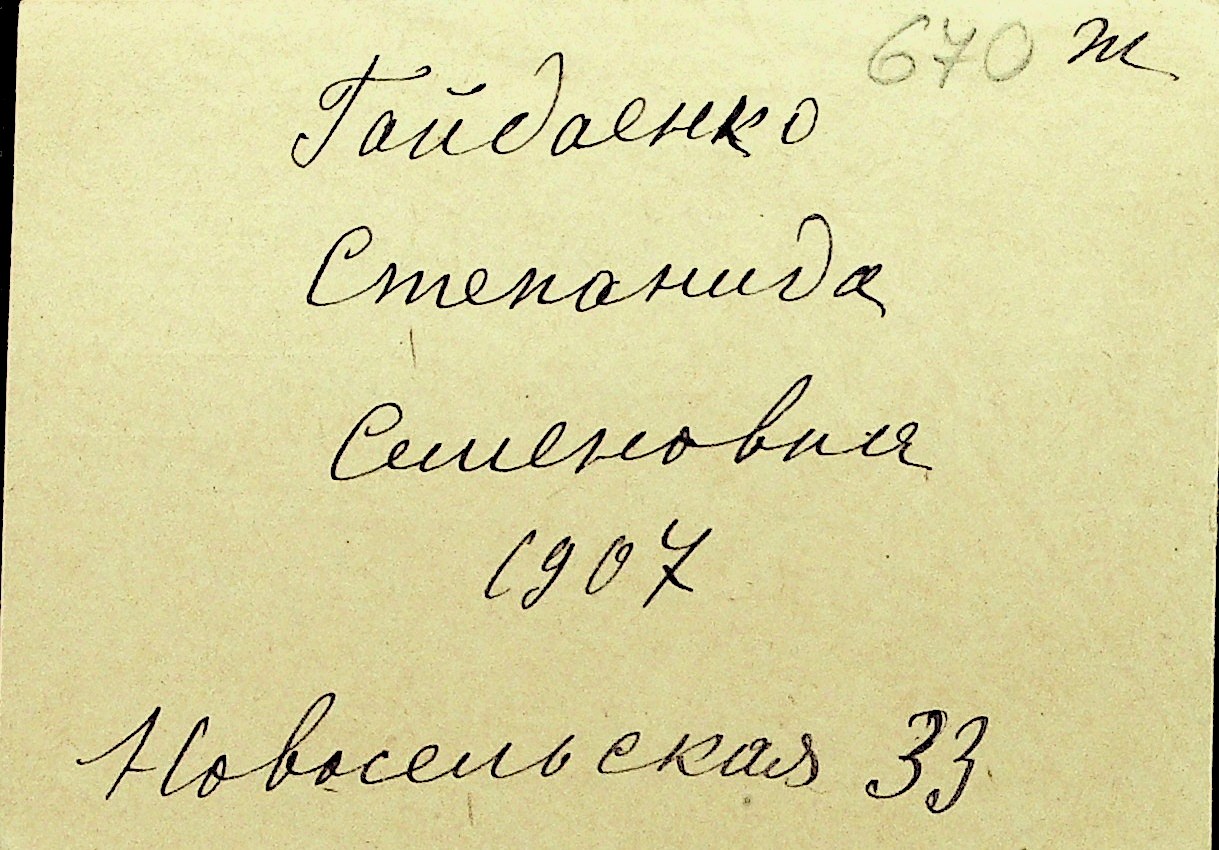 670 ж
Гайдаенко
Степанида
Семеновна
1907
Новосельская 33